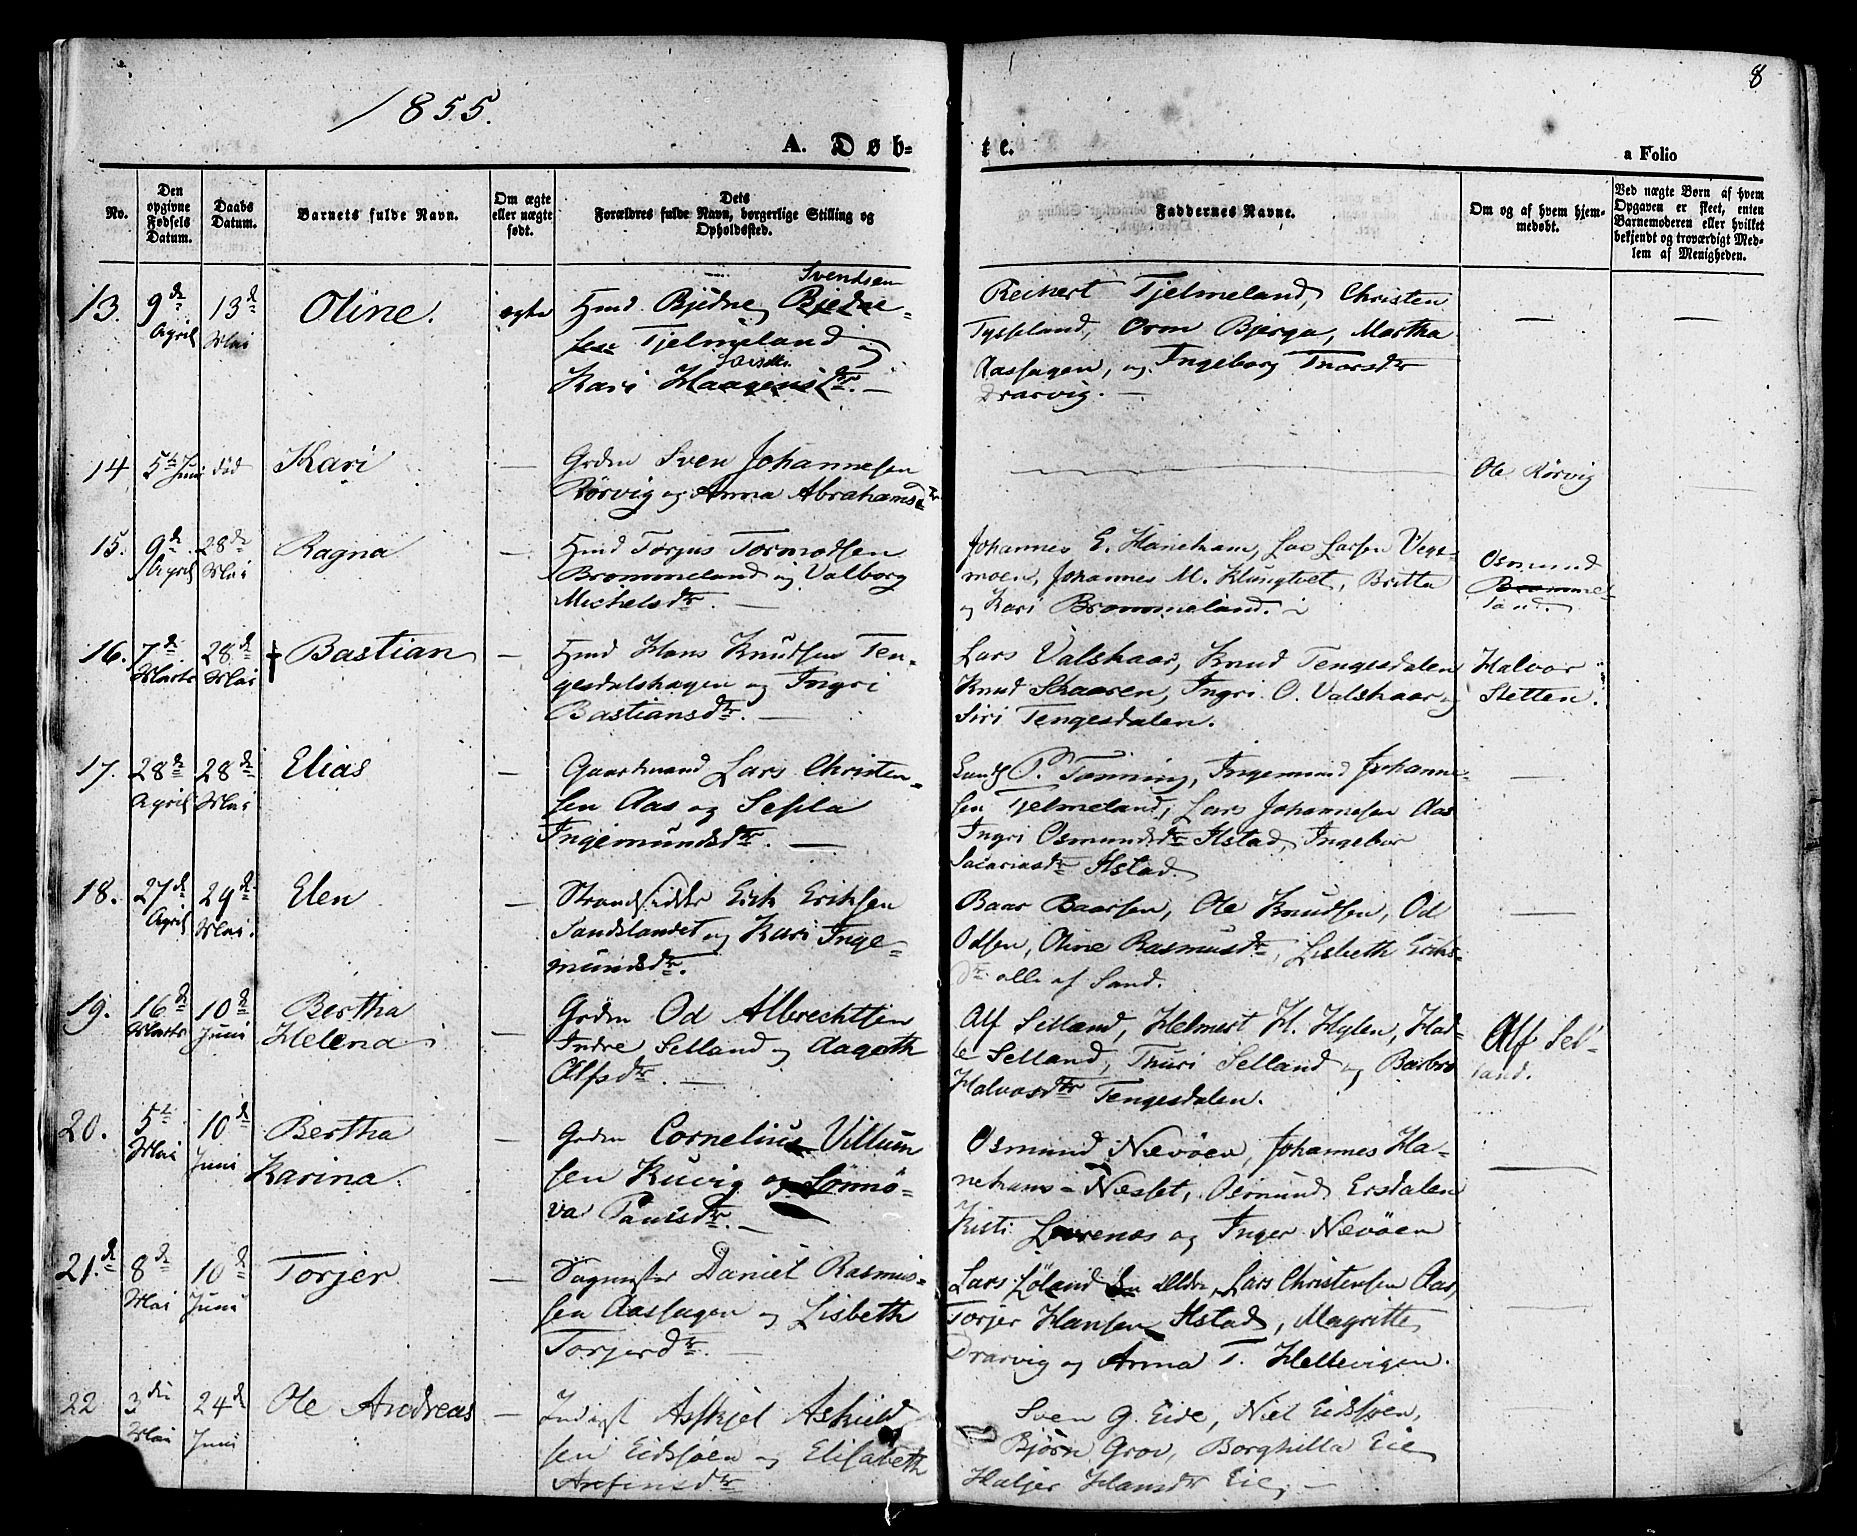 1855.
8
A. Døb-
te.
a Folio
No.
Den opgivne Fødsels Datum.
Daabs Datum.
Barnets fulde Navn.
Om ægte eller uægte født.
Dets Forældres fulde Navn, borgerlige Stilling og Opholdssted.
Faddernes Navne.
Om og af hvem hjemmedøbt.
Ved uægte Børn af hvem Opgaven er skeet, enten Barnemoderen eller hvilket bekjendt og troværdigt Medlem af Menigheden.
13. 9de April 13de Mai Oline. egte
Svendsen
Hmd Bjødne Bjødne-
sen Tjelmeland og
Kari Haagensdtr. —
Reinert Tjelmeland, Christen
Tysseland, Orm Bjerga, Martha
Aashagen, og Ingeborg Thorsdtr
Drarvig. —
14 5te Juni død Kari —
Grdm Sven Johannesen
Rörvig og Anna Abrahamsdtr
Ole Rörvig
15. 9de April 28de Mai Ragna —
Hmd Torjus Tormodsen
Brommeland og Valborg
Michelsdtr. —
Johannes E. Haneham, Lars Larsen Vege-
moen, Johannes M. Klungtvet, Britta
og Kari Brommeland.
Osmund
Bromme-
land.
16. 7de Marts 28de Mai † Bastian —
Hmd Hans Knudsen Ten-
gesdalshagen og Ingri
Bastiansdtr. —
Lars Valshaar, Knud Tengesdalen
Knud Skaaren, Ingri O. Valshaar og
Siri Tengesdalen.
Halvor
Stetten.
17. 28de April 28de Mai Elias —
Gaardmand Lars Christen-
sen Aas og Sesila
Ingemundsdtr. —
P. Tanning, Ingemund Johanne-
sen Tjelmeland, Lars Johannesen Aas
Ingri Osmundsdtr Ilstad, Ingebor
Sacariasdtr Ilstad.
18. 27de April 29de Mai. Elen —
Strandsidder Erik Eriksen
Sandslandet og Kari Inge-
mundsdtr.
Baar Baarsen, Ole Knudsen, Od
Odsen, Oline Rasmusdtr, Lisbeth Eriks-
dtr alle af Sand.
19. 16de Marts 10de Juni Bertha
Helena —
Grdm Od Albrechtsen
Indre Selland og Aagoth
Alfsdtr. —
Alf Selland, Helmert H. Hylen, Had-
le Selland, Thuri Selland og Barbro
Halvorsdtr Tengesdalen.
Alf Sel-
land.
20. 5te Mai 10de Juni Bertha
Karina. —
Grdm Cornelius Villum
sen Ruvig og Sönnö-
va Paulsdtr. —
Osmund Nævöen, Johannes Ha-
nehams-Næsset, Osmund Ersdalen
Kisti Lovrenæs og Inger Nævöen
21.de 8de Mai 10de Juni Torjer —
Sagmester Daniel Rasmus-
sen Aashagen og Lisbeth
Torjerdtr. —
Lars Löland den Ældre, Lars Christensen Aas,
Torjer Hansen Ilstad, Magritte
Drarvig og Anna T. Hellevigen.
22 3die Mai 24de Juni Ole Andreas —
Inderst Asskjel Askild
sen Eidssöen og Elisabeth
Arfinsdtr
Sven G. Eide, Niel Eidsöen,
Bjørn Grov, Borghilla Eie
Haljer Hansdtr Eie, —